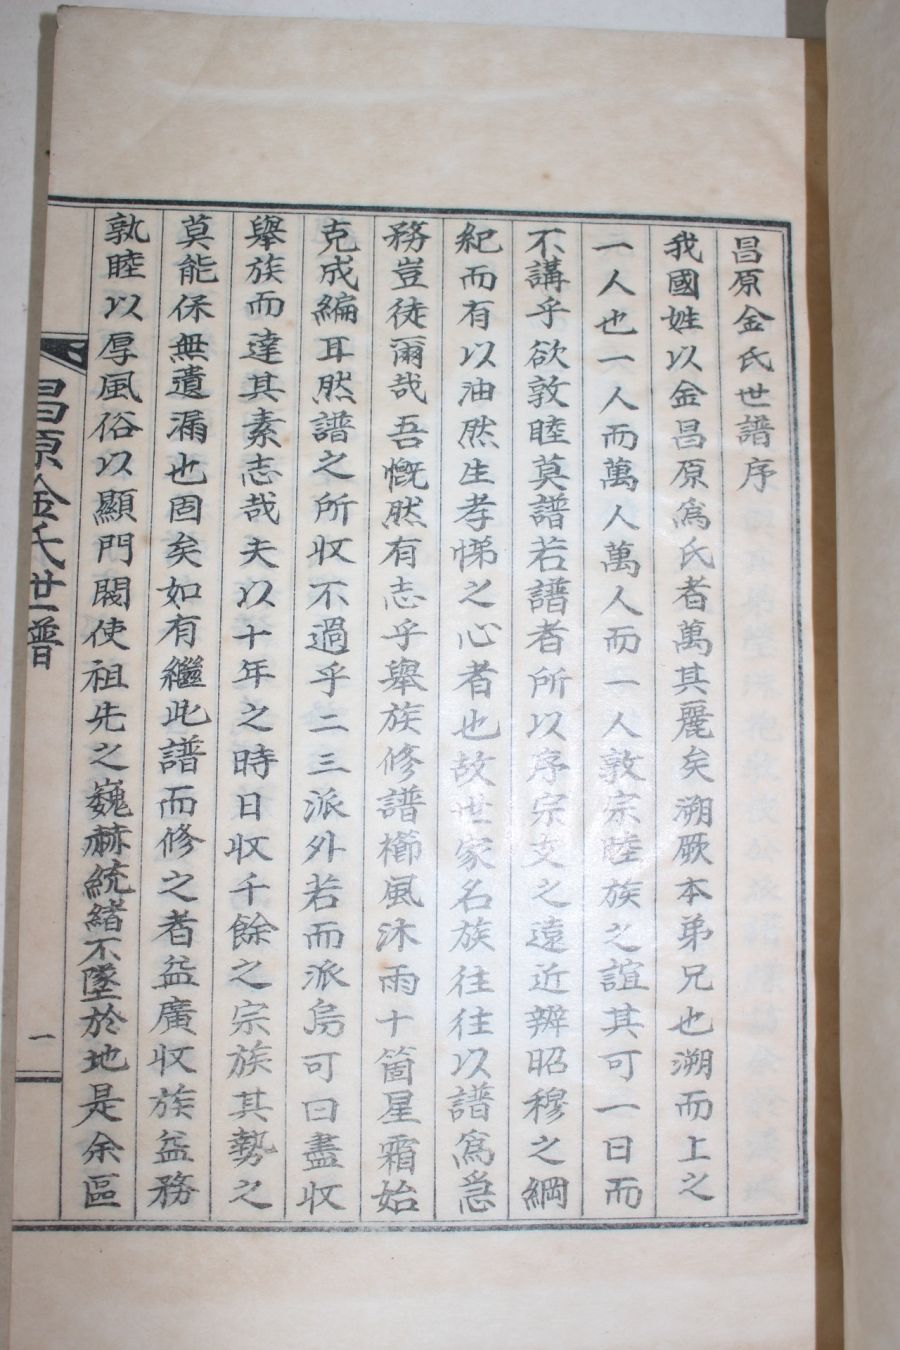 昌原金氏世譜序
我國姓以金昌原爲氏者萬其麗矣溯厥本弟兄也溯而上之
一人也一人而萬人萬人而一人敦宗睦族之誼其可一日而
不講乎欲敦睦莫譜若譜者所以序宗支之遠近辨昭穆之綱
紀而有以油然生孝悌之心者也故世家名族往往以譜爲急
務豈徒爾哉吾慨然有志乎擧族修譜櫛風沐雨十箇星霜始
克成編耳然譜之所收不過乎二三派外若而派烏可曰盡收
擧族而達其素志哉夫以十年之時日收千餘之宗族其勢之
莫能保無遺漏也固矣如有繼此譜而修之者益廣收族益務
孰睦以厚風俗以顯門閥使祖先之巍赫統緖不墜於地是余區
昌原金氏世譜
一